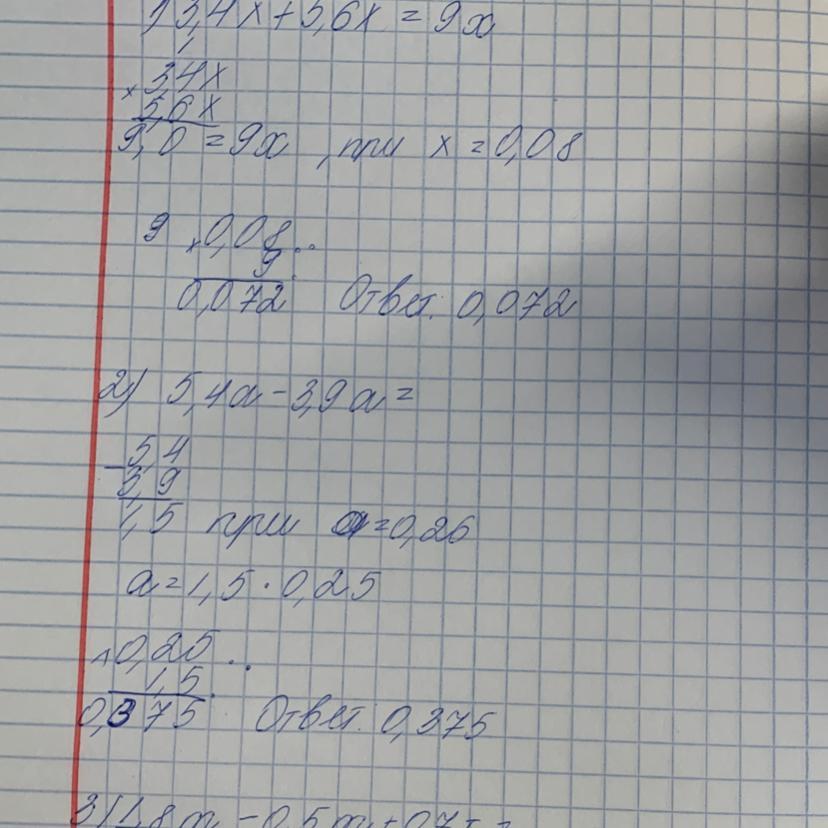 1) 3,4x + 5,6x = 9x
1
× 3,4x
5,6x
9,0 = 9x, при x = 0,08
9 × 0,08
9
0,072 Ответ: 0,072
2) 5,4a - 3,9a =
- 5,4
3,9
1,5 при a = 0,26
a = 1,5 · 0,25
0,25
1,5
0,375 Ответ. 0,375